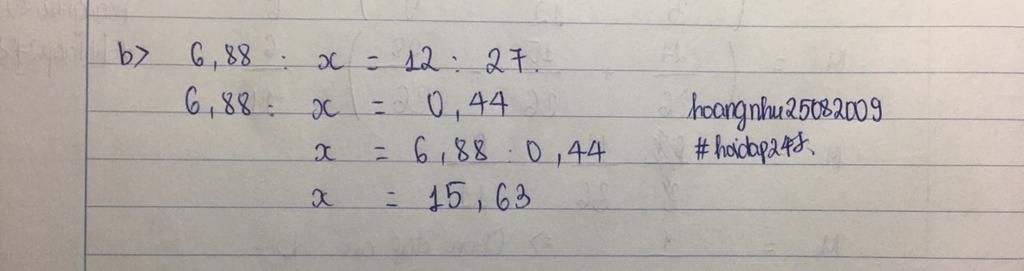 b> 6,88 : x = 12 : 27.
6,88 : x = 0,44
x = 6,88 : 0,44
x = 15,63
hoangnhu25082009
#hoidap247.